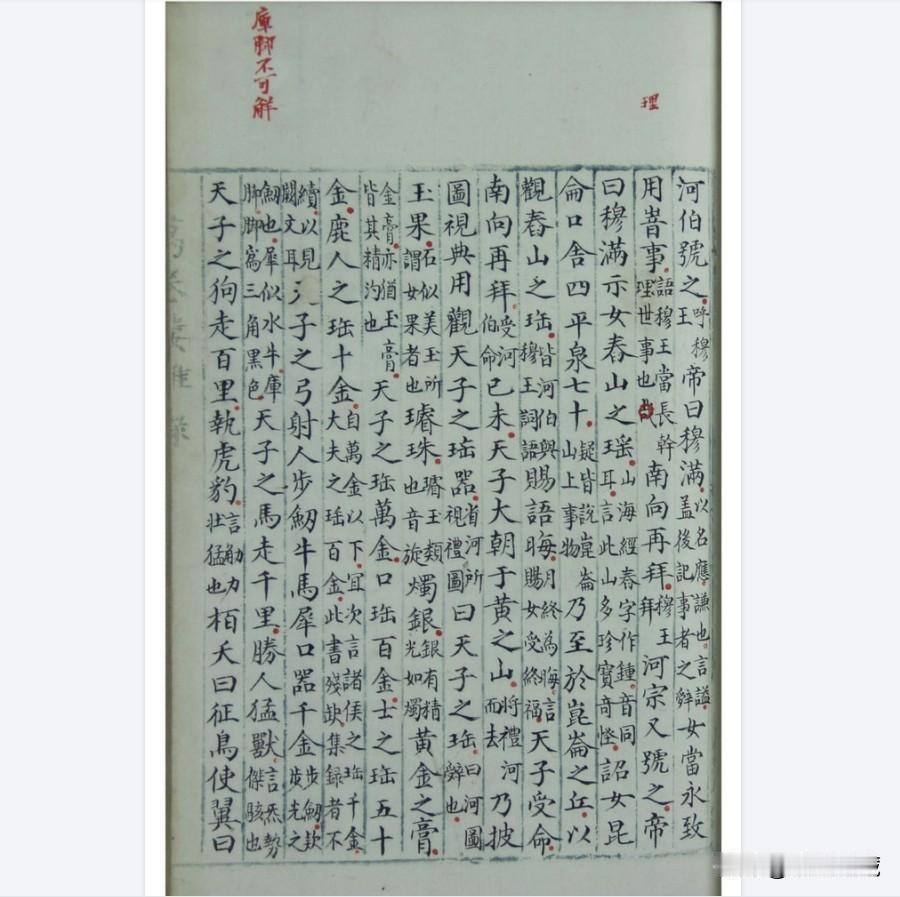 理
河伯號之呼穆王帝曰穆滿以名應謙也言謚盖後記事者之辤女當永致
用旹事語穆王當長幹理世事也南向再拜穆王拜河宗又號之帝
曰穆滿示女舂山之瑶山海經舂字作鍾音同耳言此山多珍寶奇怪詔女昆
侖口舍四平泉七十疑皆說崑崙山上事物乃至於崑崙之丘以
觀舂山之珤皆河伯與穆王詞語賜語晦月終為晦言賜女受終福天子受命
南向再拜受河伯命已未天子大朝于黄之山將禮河而去乃披
圖視典用觀天子之珤器省河所視禮圖曰天子之珤曰河圖辤也
玉果石似美玉所謂女果者也璿珠璿玉類也音旋燭銀銀有精光如燭黄金之膏
金膏亦猶玉膏皆其精汋也天子之珤萬金口珤百金士之珤五十
金鹿人之珤十金自萬金以下冝次言諸侯之珤千金大夫之瑶百金此書殘缺集録者不
續以見闕文耳子之弓射人步劒牛馬犀口器千金步劒疑步光之
庳脚不可解
劒也犀似水牛庳脚脚寫三角黑色天子之馬走千里勝人猛獸言炁勢傑駭也
天子之狗走百里執虎豹言勠力壯猛也栢夭曰征鳥使翼曰